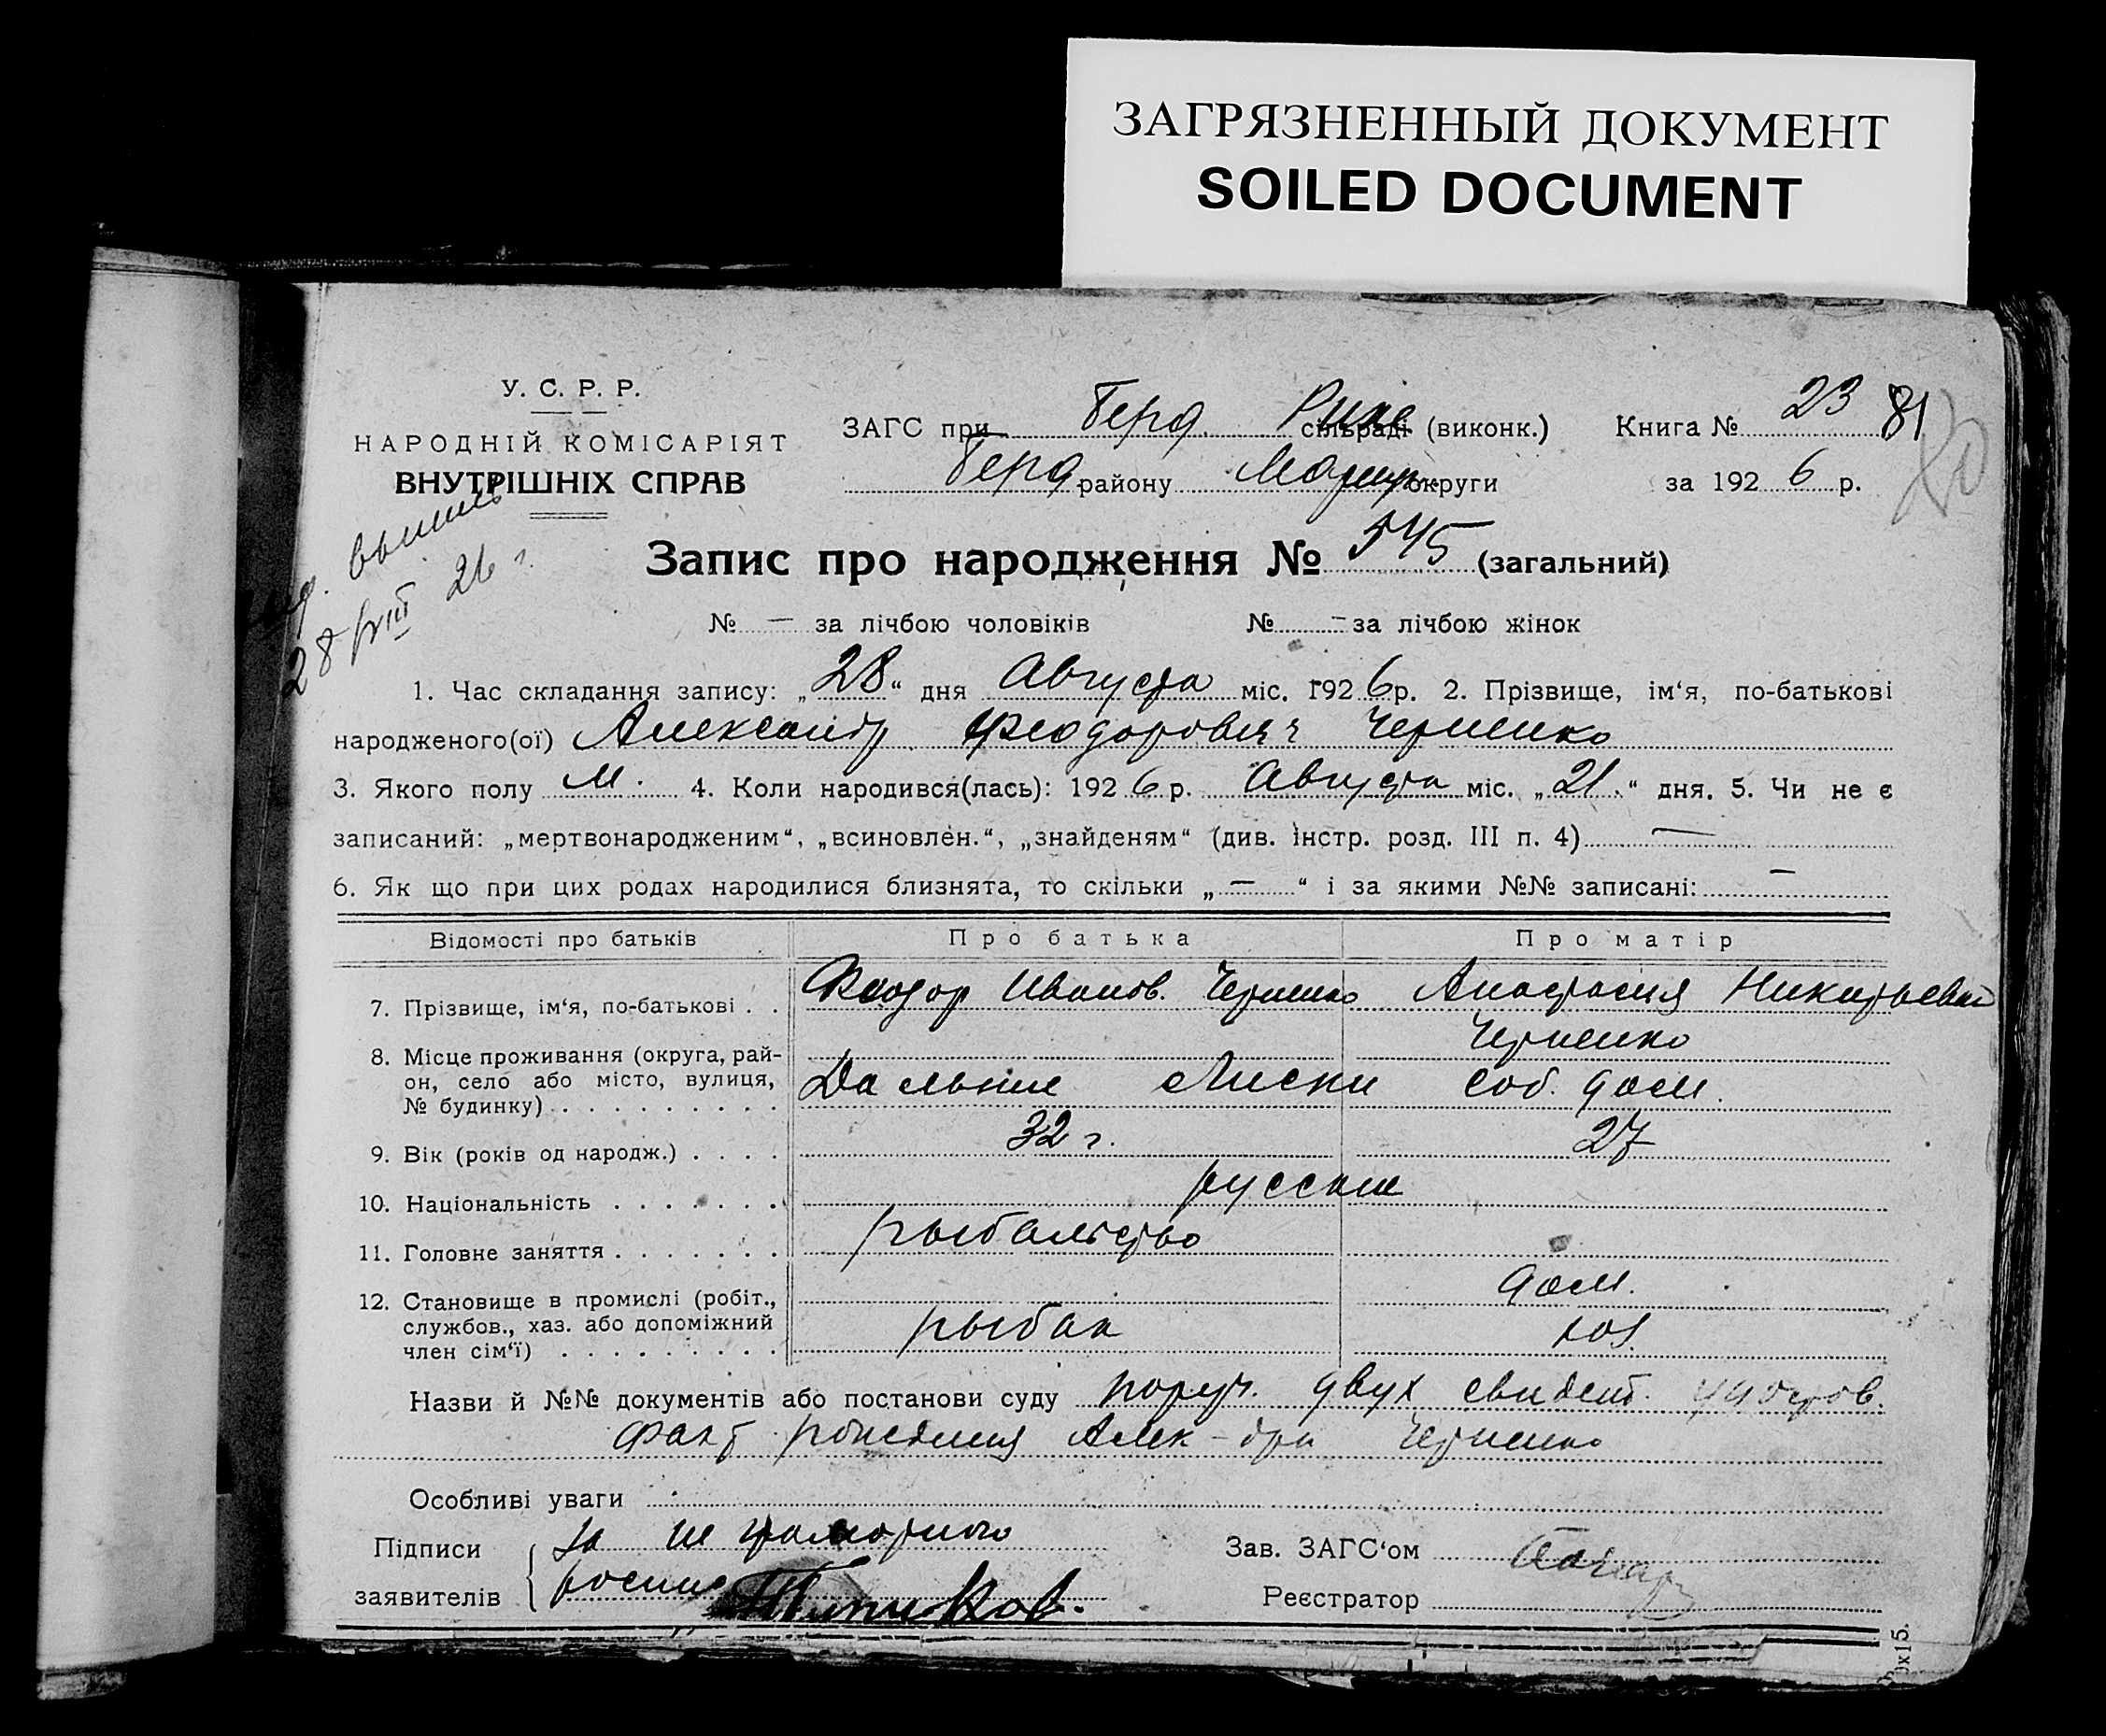 ЗАГРЯЗНЕННЫЙ ДОКУМЕНТ
SOILED DOCUMENT
У. С. Р. Р.
НАРОДНІЙ КОМІСАРІЯТ
ВНУТРІШНІХ СПРАВ
ЗАГС при Берд. Рике сільраді (виконк.)
Берд району Мариуп. округи
Книга № 23 81
80
за 1926 р.
выпись
28/VIII 26 г.
Запис про народження № 545 (загальний)
№ — за лічбою чоловіків № — за лічбою жінок
1. Час складання запису: „28“ дня Августа міс. 1926 р. 2. Прізвище, ім‘я, по-батькові
народженого(ої) Александр Феодорович Черненко
3. Якого полу м. 4. Коли народився(лась): 1926 р. Августа міс. „21.“ дня. 5. Чи не є
записаний: „мертвонародженим“, „всиновлен.“, „знайденям“ (див. інстр. розд. III п. 4) —
6. Як що при цих родах народилися близнята, то скільки „—“ і за якими №№ записані: —
Відомості про батьків Про батька Про матір
7. Прізвище, ім‘я, по-батькові . . Феодор Иванов. Черненко Анастасия Никитьевна
Черненко
8. Місце проживання (округа, рай-
он, село або місто, вулиця,
№ будинку) . . . . . . . . . Дальние Лиски соб. дом.
9. Вік (років од народж.) . . . . 32 г. 27
10. Національність . . . . . . . русские
11. Головне заняття . . . . . . . рыбальство
12. Становище в промислі (робіт.,
службов., хаз. або допоміжний
член сім‘ї) . . . . . . . . . рыбак дом. хоз.
Назви й №№ документів або постанови суду поруч. двух свидет. удостов.
факт рождения Алек-дра Черненко
Особливі уваги
Підписи
заявителів
за не грамотного
роспис
Зав. ЗАГС‘ом
Реєстратор